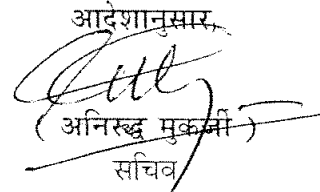 आदेशानुसार,
( अनिरूद्ध मुकर्जी )
सचिव